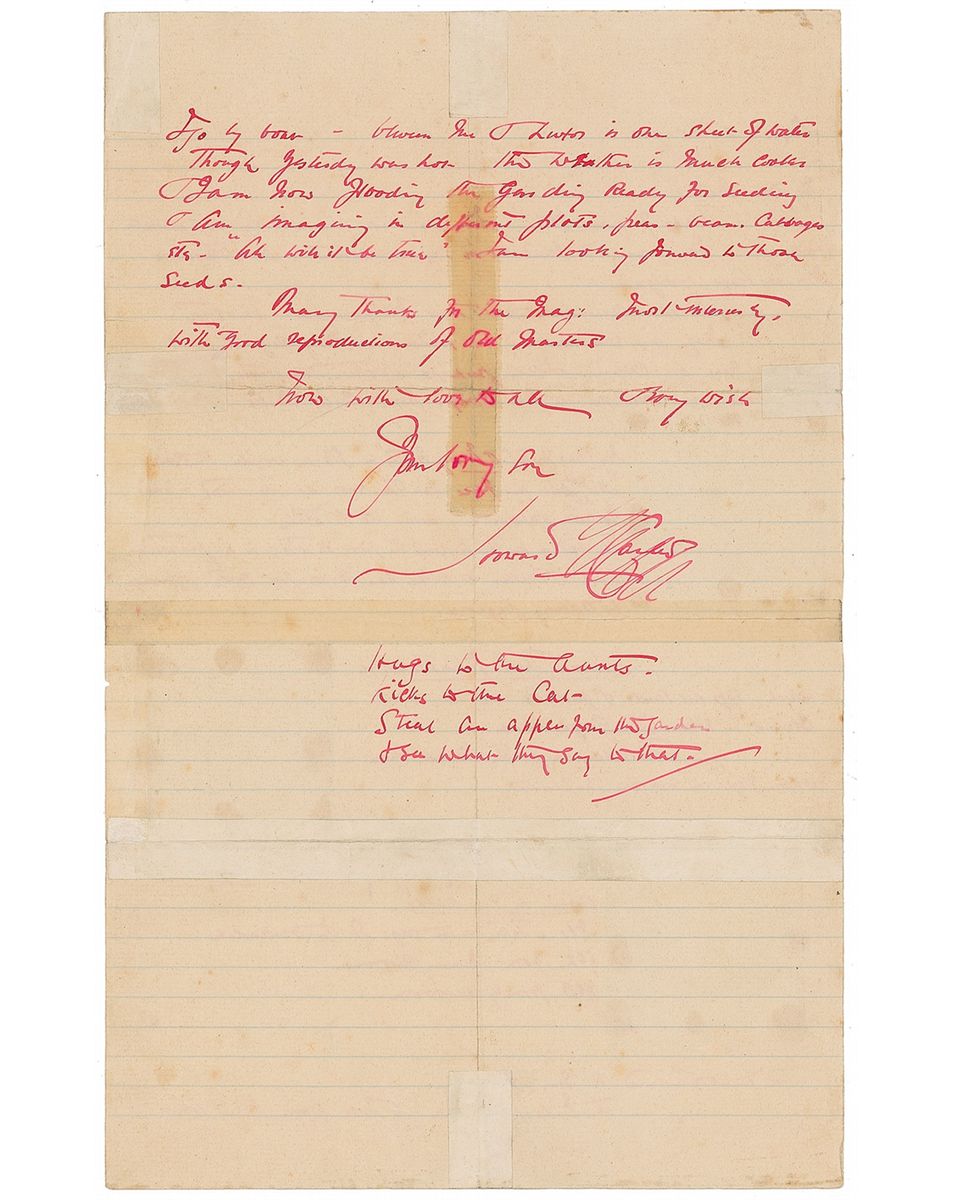 go by boat - between me & Luxor is one sheet of water
Though Yesterday was hot the weather is much cooler
I am now flooding the Garding Ready for Seeding
I am imagining in different plots, peas - beans Cabbages
etc - "Ah will it be true" I am looking forward to those
Seeds.
Many thanks for the Mag: most interesting,
with good reproductions of Old Masters
Now with love to all
Your loving Son
Howard Carter
Hugs to the Aunts.
Kicks to the Cat-
Steal an apple from the Garden
& see what they say to that.